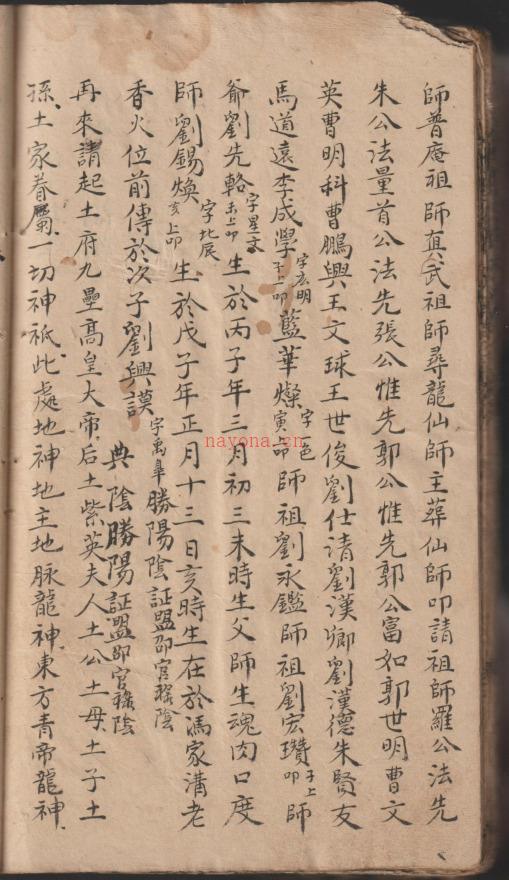 師普庵祖師真武祖師尋龍仙師主葬仙師叩請祖師羅公法先
朱公法量首公法先張公惟先郭公惟先郭公富如郭世明曹文
英曹明科曹鵬興王文球王世俊劉仕清劉漢卿劉漢德朱賢友
馬道遠李成學字玄明子上卯藍華燦字一色寅上卯師祖劉永鑑師祖劉宏瓚子上卯師
爺劉先輅字星文未上卯生於丙子年三月初三未時生父師生魂肉口度
師劉錫煥字北辰亥上卯生於戊子年正月十三日亥時生在於馮家溝老
香火位前傳於次子劉興謨字禹皋勝陽陰証盟卲官祿陰
典陰勝陽証盟卲官祿陰
再來請起土府九壘高皇大帝后土紫英夫人土公土母土子土
孫土家眷屬一切神祇此處地神地主地脉龍神東方青帝龍神
nayona.cn